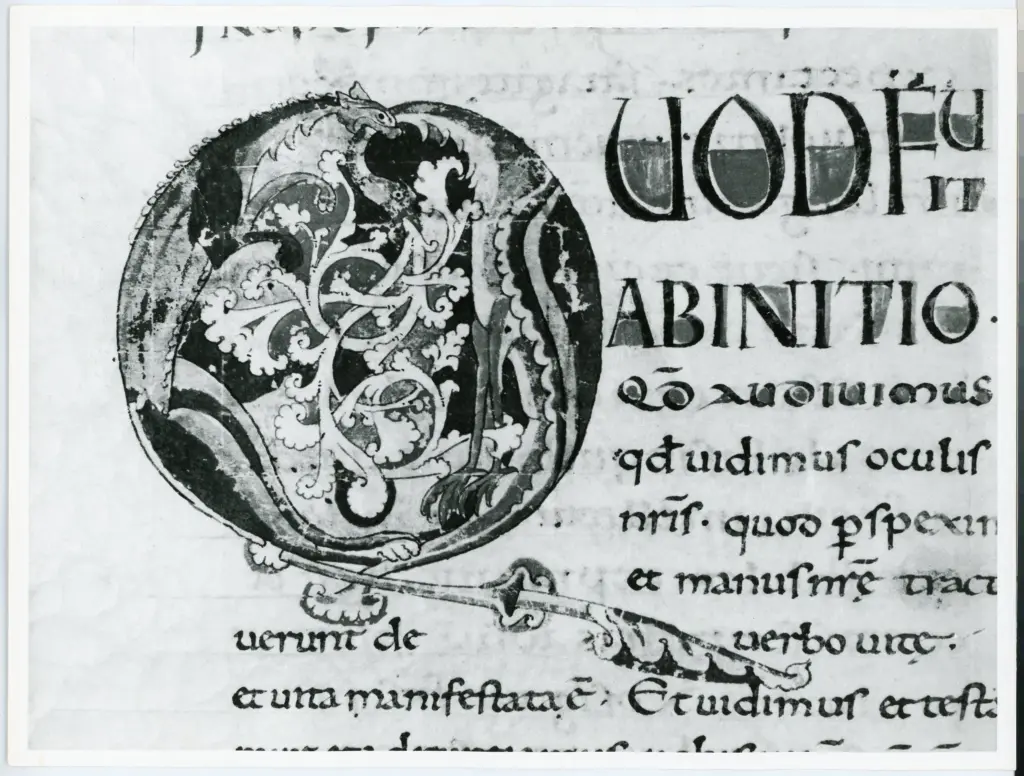 QUODFU
IT
ABINITIO.
Qd̄ audiuimus
qđ uidimuſ oculiſ
nr̄iſ. quod ꝑſpexim
et manuſ nr̄ę tract
uerunt de uerbo uitę.
et uita manifeſtata ē. Et uidimuſ et teſta